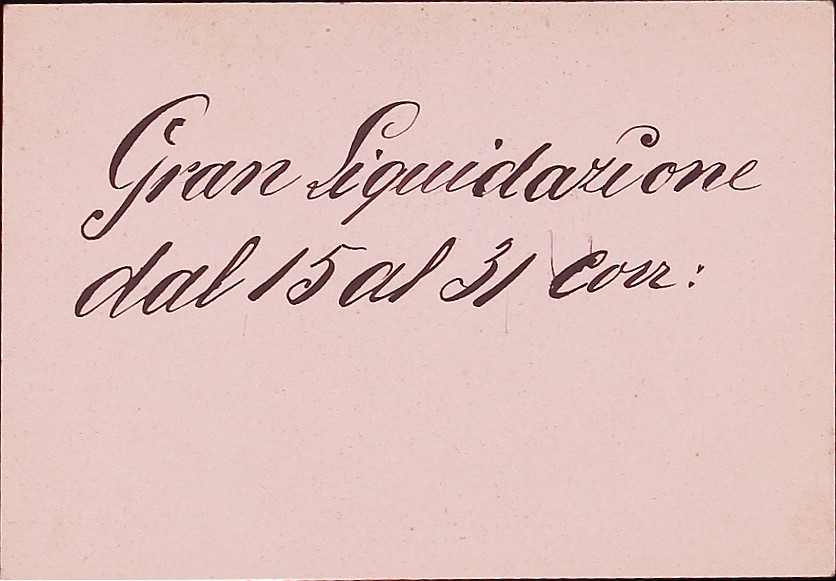 Gran Liquidazione
dal 15 al 31 corr: